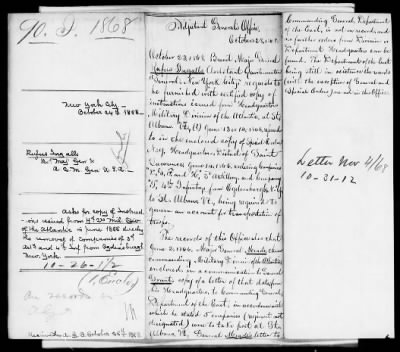 90. I. 1868
New York City
October 24th 1868.
Rufus Ingalls
Bt. Maj. Gen &
A. Q. M. Gen U.S.A.
asks for copy of instruc-
tions issued from
of the Atlantic in June 1866 directing
the removal of companies of 3d
Art'y and 4th Inf. from
New York.
10-26-1/2
on
Adjutant General's Office,
October 28, 1868.
October 23, 1868, Brevet Major General
Rufus Ingalls Assistant Quartermaster
General, New York City, requests to
be furnished with certified copy of
instructions issued from Headquarters
Military Division of the Atlantic, at St.
Albans Vt, June
in the enclosed copy of Special Orders
No. Headquarters District of Saint
Lawrence, June 14, 1866, ordering companies
and H, 3d Artillery and Company
4th Infantry from Ogdensburgh N.Y.
to St. Albans Vt, being required to
govern an account for transportation of
troops.
The records of this Office show that
June 1866, Major General Meade then
commanding Military Division of the Atlantic
enclosed in a communication to General
Grant, copy of a letter of that date from
his Headquarters, to Commanding General
Department of the East, in accordance with
which he stated 5 companies (regiments not
designated) were to take post at St.
Albans Vt. General Meade's letter to
Commanding General, Department
of the East, is not on record and
no further orders from Division or
Department Headquarters can be
found. The Department of the East
being still in existence the records
with the exception of General and
Special Orders, are not in this Office.
Letter Nov 4/68
10-21-12